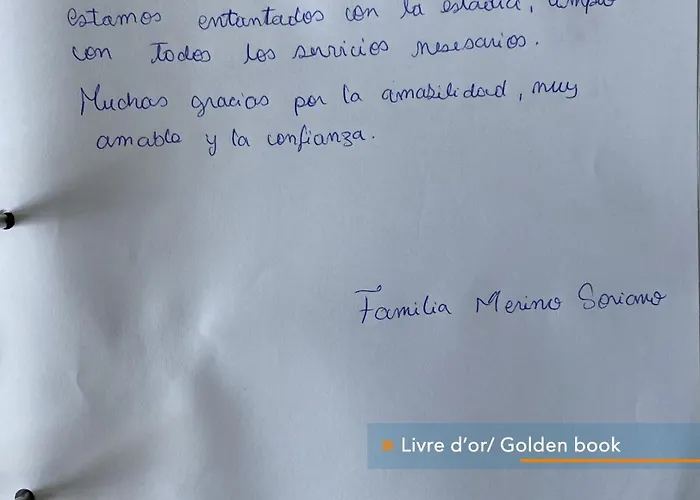 estamos entantados con la estadia,
con todos los servicios nesesarios.
Muchas gracias por la amabilidad, muy
amable y la confianza.
Familia Merino Soriano
Livre d'or/ Golden book